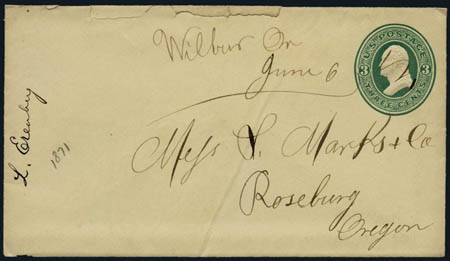 Wilbur On
June 6
U.S. POSTAGE
3 3
THREE CENTS
Mess S. Marks & Co
Roseburg
Oregon
L.
1871